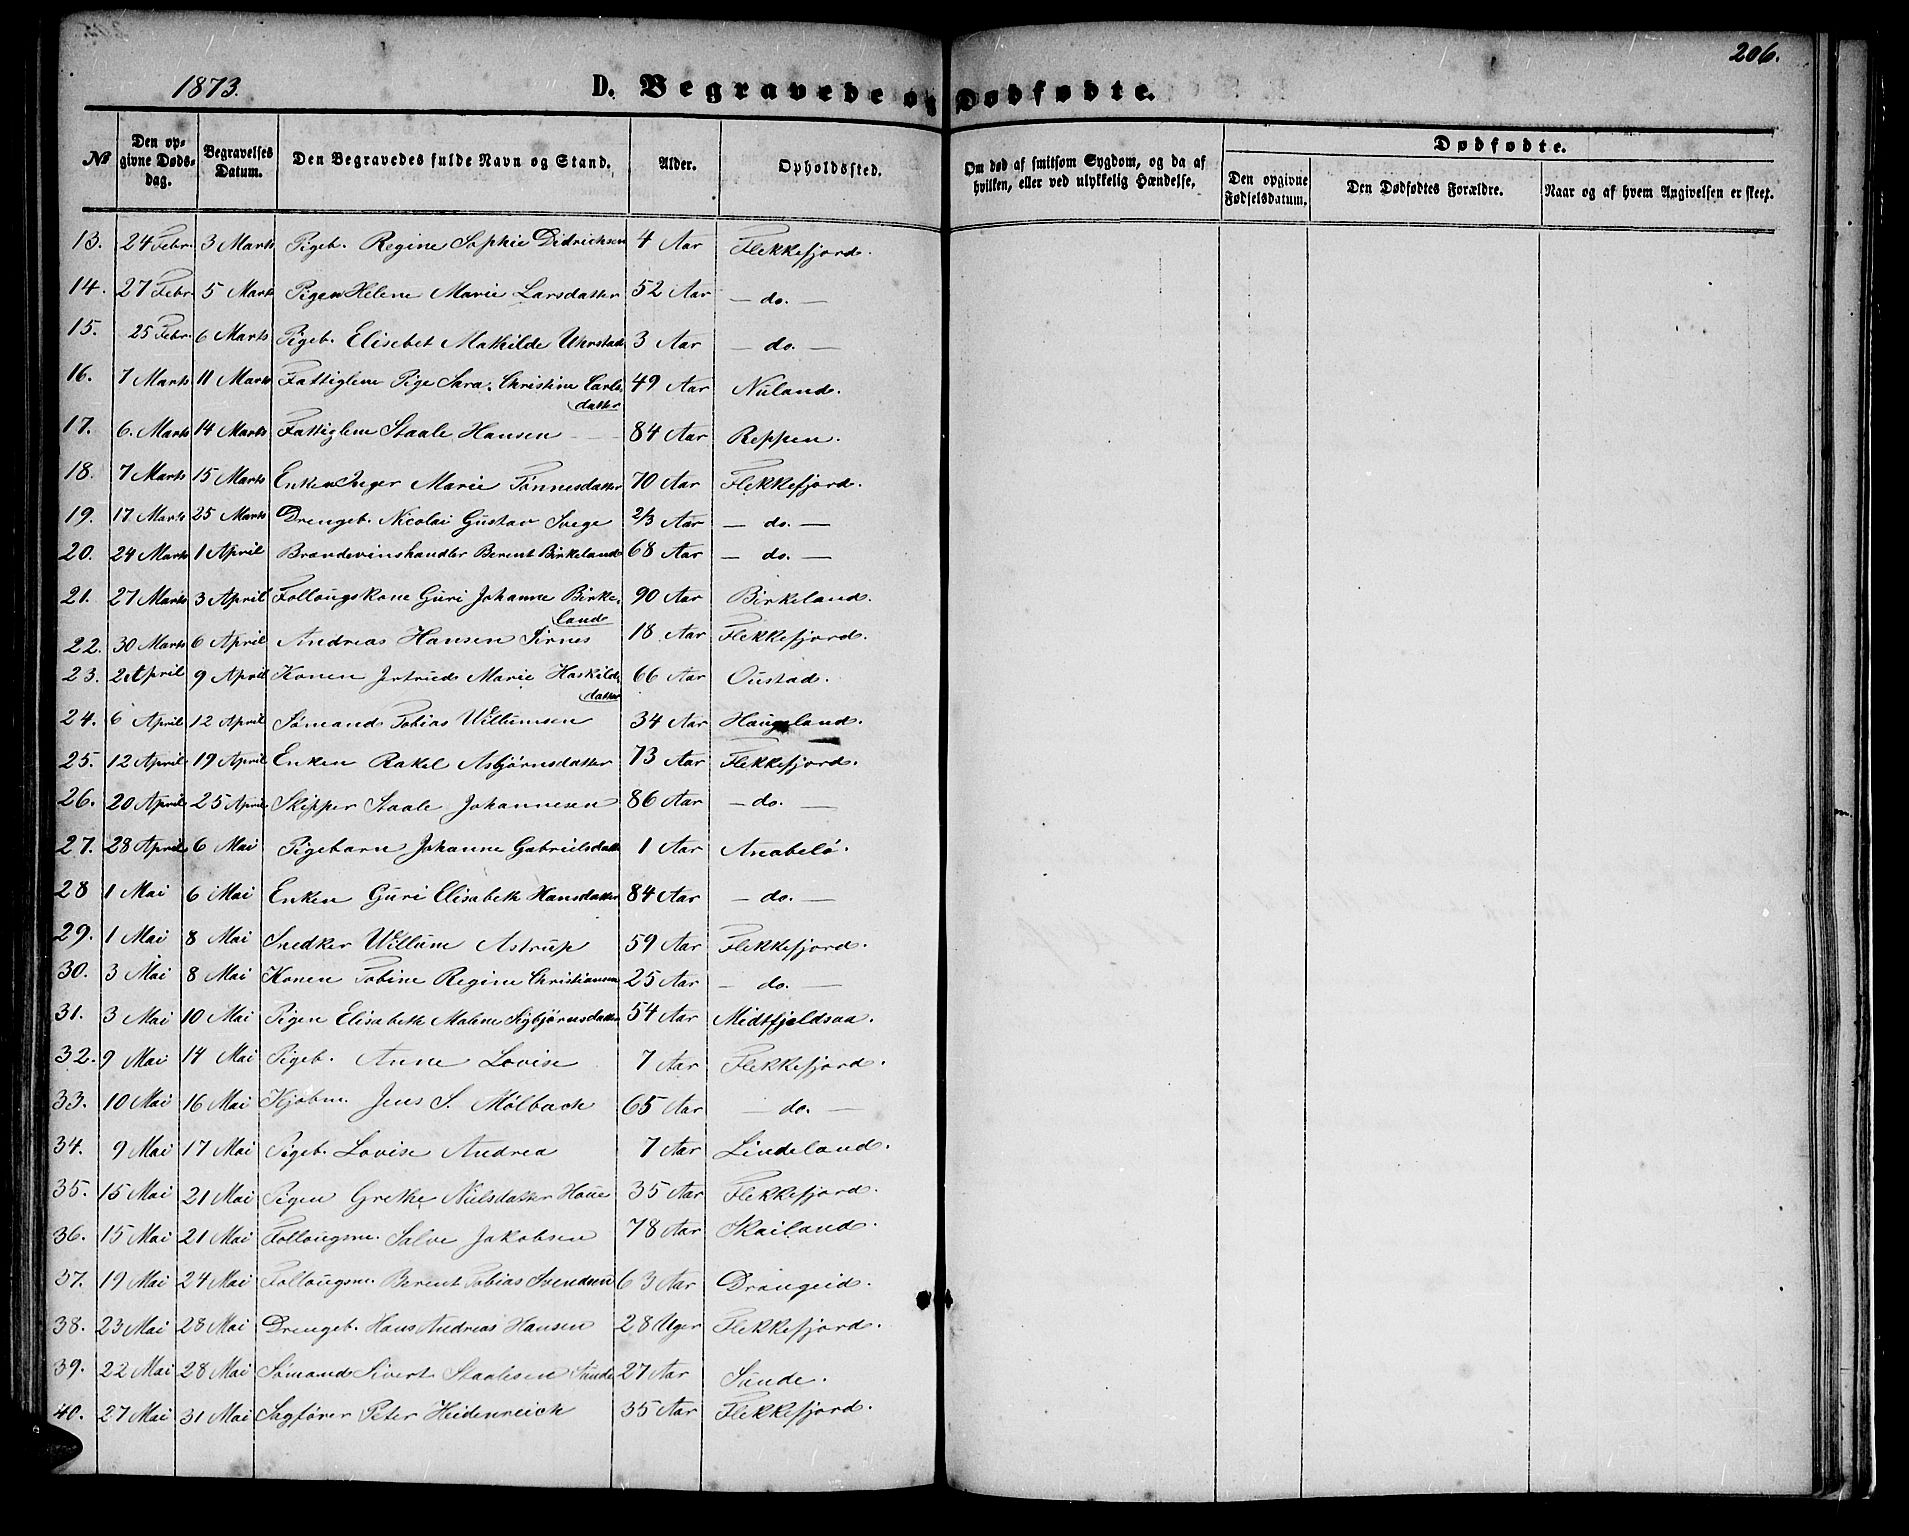 206.
1873. D. Begravede og Dødfødte.
№ Den opgivne Dødsdag. Begravelses Datum. Den Begravedes fulde Navn og Stand. Alder. Opholdssted. Om død af smitsom Sygdom, og da af hvilken, eller ved ulykkelig Hændelse. Dødfødte. Den opgivne Fødselsdatum. Den Dødfødtes Forældre. Naar og af hvem Angivelsen er skeet.
13. 24 Febr. 3 Marts Pigeb. Regine Sophie Didrichsen 4 Aar Flekkefjord.
14. 27 Febr. 5 Marts Pigen Helene Marie Larsdatter 52 Aar — do. —
15. 25 Febr. 6 Marts Pigeb. Elisebet Mathilde 3 Aar — do. —
16. 7 Marts 11 Marts Fattiglem Pige Sara Christine Carls- 49 Aar Nuland.
datter
17. 6. Marts 14 Marts Fattiglem Staale Hansen 84 Aar Reppen.
18. 7 Marts 15 Marts Enken Inger Marie Tønnesdatter 70 Aar Flekkefjord.
19. 17 Marts 25 Marts Drengeb. Nicolai Gustav Svege 2/3 Aar — do. —
20. 24 Marts 1 April Brændevinshandler Berent Birkeland 68 Aar — do. —
21. 27 Marts 3 April Follougskone Guri Johanne Birke- 90 Aar Birkeland.
land
22. 30 Marts 6 April Andreas Hansen Sirnes 18 Aar Flekkefjord.
23. 2 April 9 April Konen Jertrud Marie Haskilds- 66 Aar Oustad.
datter
24. 6 April 12 April Sømand Tobias Willumsen 34 Aar Haugeland.
25. 12 April 19 April Enken Rakel Asbjørnsdatter 73 Aar Flekkefjord.
26. 20 April 25 April Skipper Staale Johannesen 86 Aar — do. —
27. 28 April 6 Mai Pigebarn Johanne Gabrielsdatt 1 Aar Anabelø.
28 1 Mai 6 Mai Enken Guri Elisabeth Hansdatter 84 Aar — do. —
29. 1 Mai 8 Mai Snedker Willum Astrup 59 Aar Flekkefjord.
30. 3 Mai 8 Mai Konen Tobine Regine Christiansen 25 Aar — do. —
31. 3 Mai 10 Mai Pigen Elisabeth Malene Sigbjørnsdatter 54 Aar Midtfjeldsaa.
32. 9 Mai 14 Mai Pigeb. Anne Lovise 7 Aar Flekkefjord.
33. 10 Mai 16 Mai Kjøbm. Jens S. Mølbach 65 Aar — do. —
34. 9 Mai 17 Mai Pigeb. Lovise Andrea 7 Aar Lindeland.
35. 15 Mai 21 Mai Pigen Grethe Nilsdatter Houe 35 Aar Flekkefjord.
36. 15 Mai 21 Mai Follougsm. Salve Jakobsen 78 Aar Skailand.
37. 19 Mai 24 Mai Follougsm. Berent Tobias Svendsen 63 Aar Drangeid.
38. 23 Mai 28 Mai Drengeb. Hans Andreas Hansen 28 Uger Flekkefjord.
39. 22 Mai 28 Mai Sømand Sivert Staalesen Sunde 27 Aar Sunde.
40. 27 Mai 31 Mai Sagfører Peter Heidenreich 35 Aar Flekkefjord.